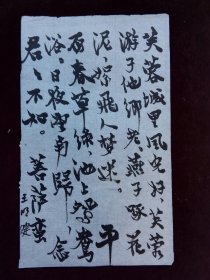 芙蓉城里风光好，芙蓉
游子他乡老。燕子啄花
泥，絮飞人梦迷。平
春草绿，池上鸳鸯
浴。日夜望南归，念
君々不知。菩萨蛮